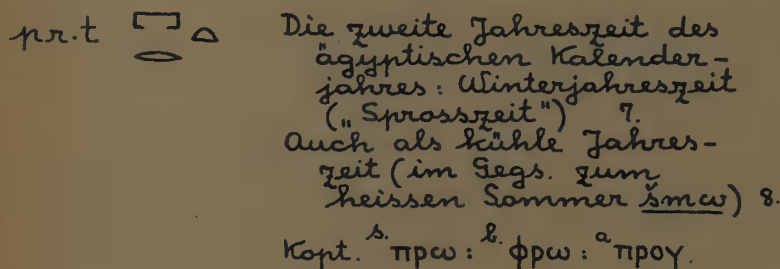 pr.t 𓉐𓂋𓏏 Die zweite Jahreszeit des
ägyptischen Kalender-
jahres: Winterjahreszeit
(„Sprosszeit") 7.
Auch als kühle Jahres-
zeit (im Gegs. zum
heissen Sommer šmcw) 8.
Kopt. s. ⲡⲣⲱ : b. ⲫⲣⲱ : a ⲡⲣⲟⲩ.